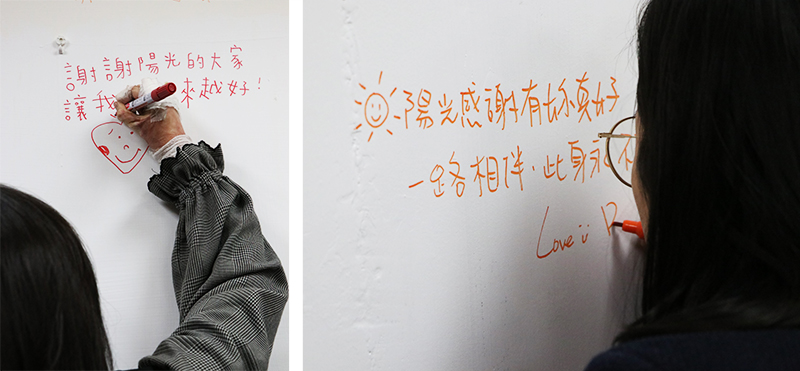 謝謝陽光的大家
讓我 來越好!
陽光感謝有妳真好
一路相伴.此身永
Love